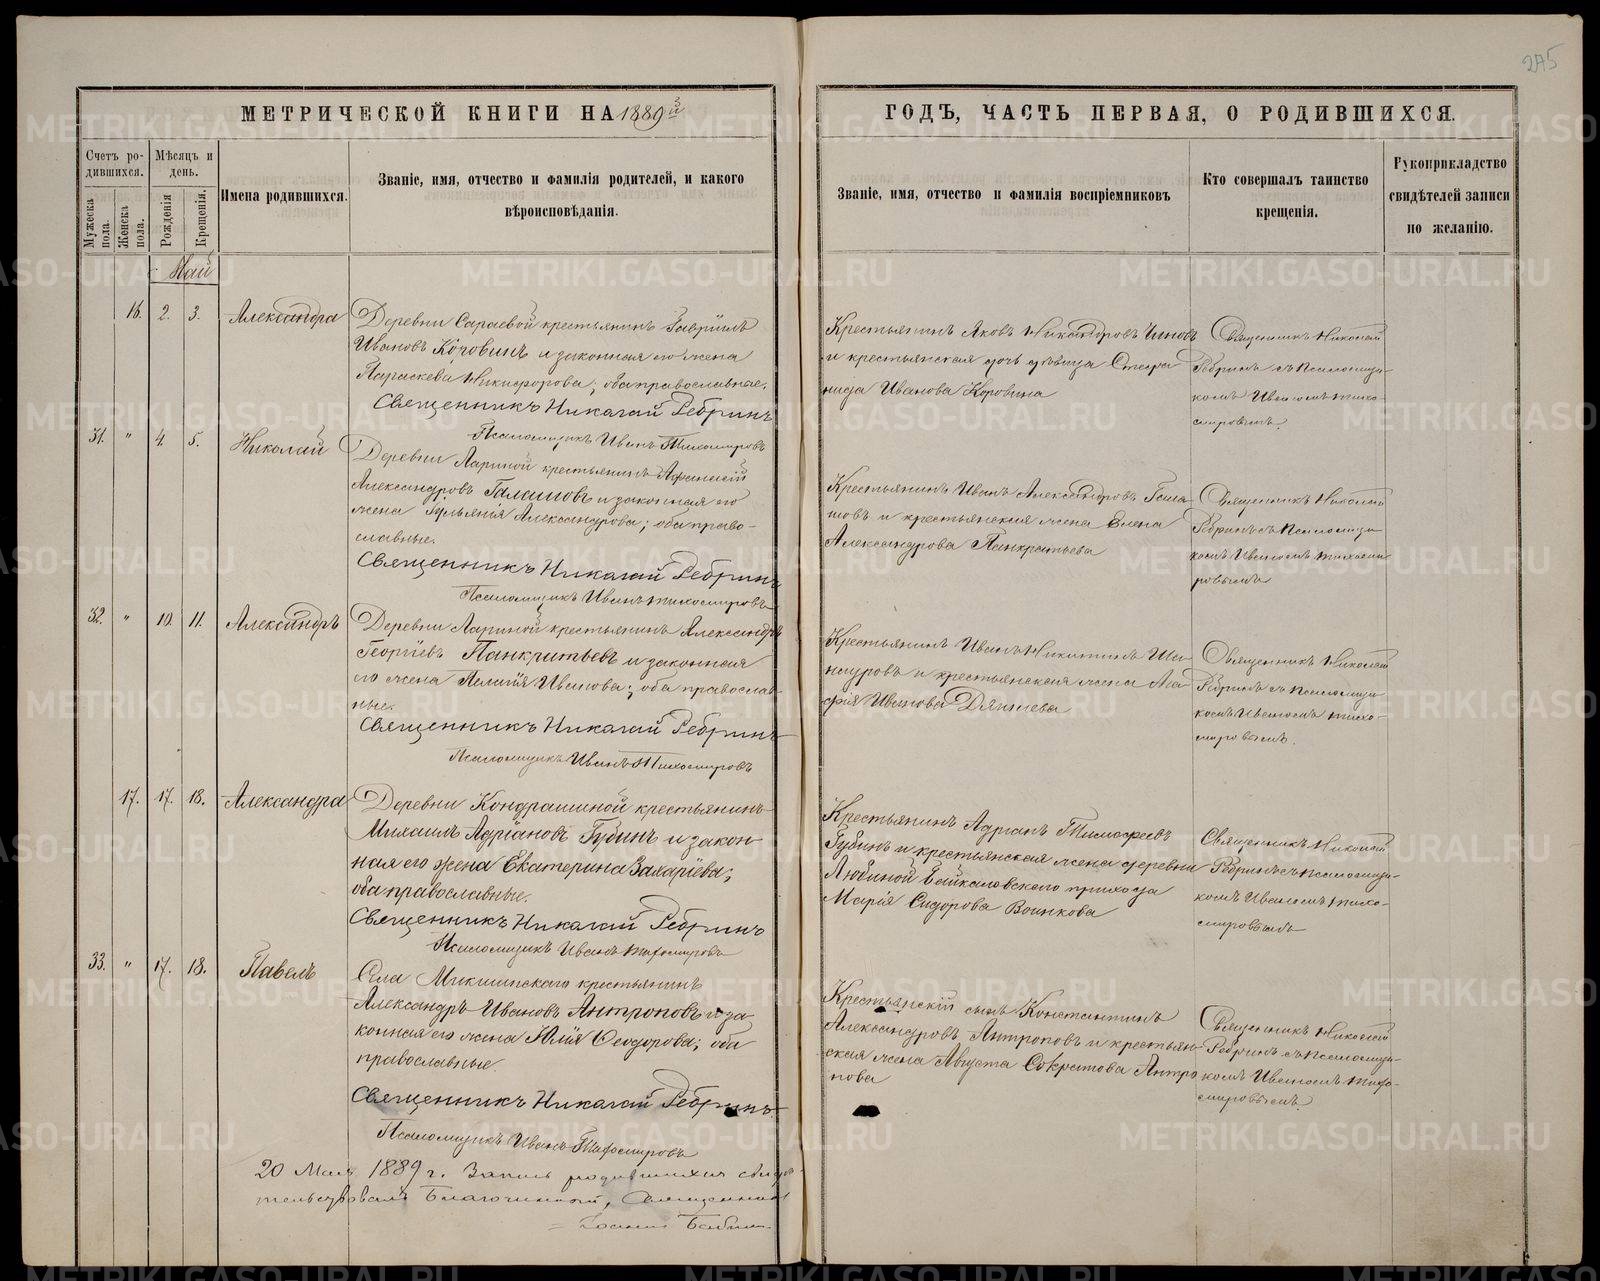 275
МЕТРИЧЕСКОЙ КНИГИ НА 1889й
ГОДЪ, ЧАСТЬ ПЕРВАЯ, О РОДИВШИХСЯ.
Счетъ ро-
дившихся.
Мужеска пола.
Женска пола.
Мѣсяцъ и
день.
Рожденія
Крещенія.
Имена родившихся.
Званіе, имя, отчество и фамилія родителей, и какого
вѣроисповѣданія.
Званіе, имя, отчество и фамилія воспріемниковъ
Кто совершалъ таинство
крещенія.
Рукоприкладство
свидѣтелей записи
по желанію.
Май
16. 2. 3. Александра
Деревни Сараевой крестьянинъ Гавріилъ
Ивановъ Коровинъ и законная его жена
Параскева Никифорова; оба православные.
Священникъ Николай Ребринъ
Псаломщикъ Иванъ Тихомировъ
Крестьянинъ Яковъ Никандровъ
и крестьянская дочь дѣвица Стефа
нида Иванова Коровина
Священникъ Николай
Ребринъ съ Псаломщи-
комъ Иваномъ Тихо-
мировымъ.
31. " 4. 5. Николай
Деревни Лариной крестьянинъ Афанасій
Александровъ Галашовъ и законная его
жена Александрова; оба право-
славные.
Священникъ Николай Ребринъ
Псаломщикъ Иванъ Тихомировъ
Крестьянинъ Иванъ Александровъ Гала
шовъ и крестьянская жена Елена
Александрова Панкратьева
Священникъ Николай
Ребринъ съ Псаломщи
комъ Иваномъ Тихоми
ровымъ
32. " 10. 11. Александръ
Деревни Лариной крестьянинъ Александръ
Георгіевъ Панкратьевъ и законная
его жена Иванова; оба православ
ные.
Священникъ Николай Ребринъ
Псаломщикъ Иванъ Тихомировъ
Крестьянинъ Иванъ Никитинъ
и крестьянская жена Ма
рія Иванова
Священникъ Николай
Ребринъ съ Псаломщи
комъ Иваномъ Тихо-
мировымъ.
17. 17. 18. Александра
Деревни Кондрашиной крестьянинъ
Михаилъ Адріановъ Губинъ и закон-
ная его жена Екатерина Захаріева;
оба православные.
Священникъ Николай Ребринъ
Псаломщикъ Иванъ Тихомировъ
Крестьянинъ Адріанъ Тимофеевъ
Губинъ и крестьянская жена деревни
Любиной Байкаловскаго прихода
Марія Сидорова Воинкова
Священникъ Николай
Ребринъ съ Псаломщи-
комъ Иваномъ Тихо-
мировымъ
33. " 17. 18. Павелъ
Села Микшинскаго крестьянинъ
Александръ Ивановъ Антроповъ и за
конная его жена Юлія Ѳеодорова; оба
православные.
Священникъ Николай Ребринъ
Псаломщикъ Иванъ Тихомировъ
Крестьянскій сынъ Константинъ
Александровъ Антроповъ и крестьян-
ская жена Августа Сократова Антро
пова
Священникъ Николай
Ребринъ съ Псаломщи-
комъ Иваномъ Тихо-
мировымъ.
20 Мая 1889 г. Запись родившихся свидѣ-
тельствовалъ Благочинный, Священникъ
METRIKI.GASO-URAL.RU